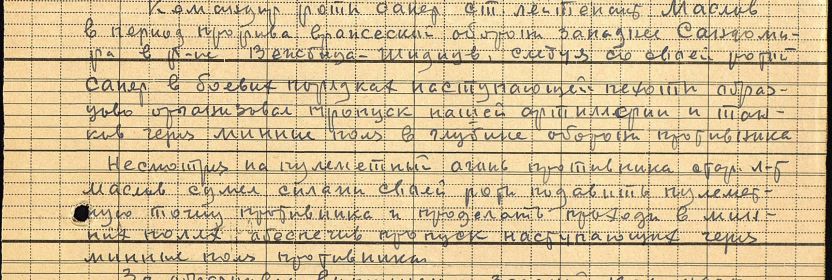 Командир роты сапер ст лейтенант Маслов
в период прорыва вражеской обороны западнее Сандоми-
ра в р-не Венствица-Шидлув, следуя со своей ротой
сапер в боевых порядках наступающей пехоты образ-
цово организовал пропуск нашей артиллерии и тан-
ков через минные поля в глубине обороны противника
Несмотря на пулеметный огонь противника стар. л-т
Маслов сумел силами своей роты подавить пулемет-
ную точку противника и проделать проходы в мин-
ных полях обеспечив пропуск наступающих через
минные поля противника.
За